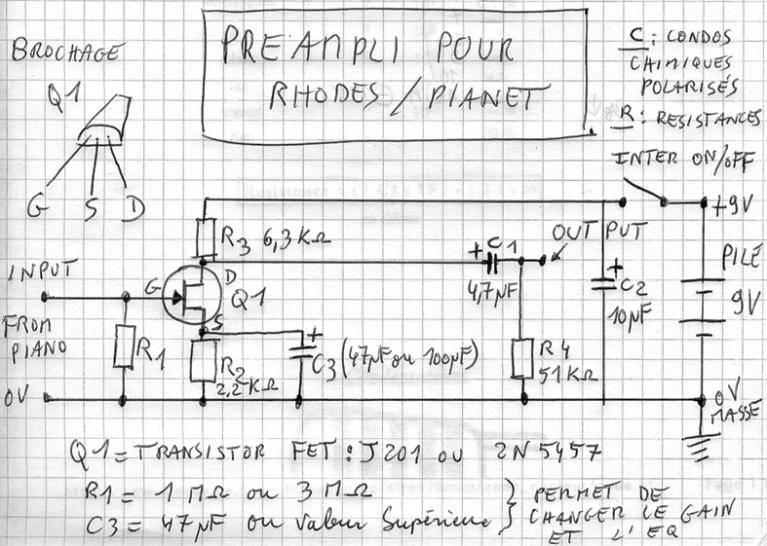 PREAMPLI POUR
RHODES / PIANET
BROCHAGE
Q1
G S D
C : CONDOS
CHIMIQUES
POLARISÉS
R : RESISTANCES
INTER ON/OFF
+9V
R3 6,3KΩ
+ C1
4,7µF
OUT PUT
+
C2
10µF
PILE
9V
INPUT
FROM
PIANO
0V
G
D
S
Q1
R1
R2
2,2KΩ
+
C3 (47µF ou 100µF)
R4
51KΩ
0V
MASSE
Q1 = TRANSISTOR FET : J201 OU 2N5457
R1 = 1 MΩ ou 3 MΩ
C3 = 47µF ou valeur Supérieure
} PERMET DE
CHANGER LE GAIN
ET L'EQ